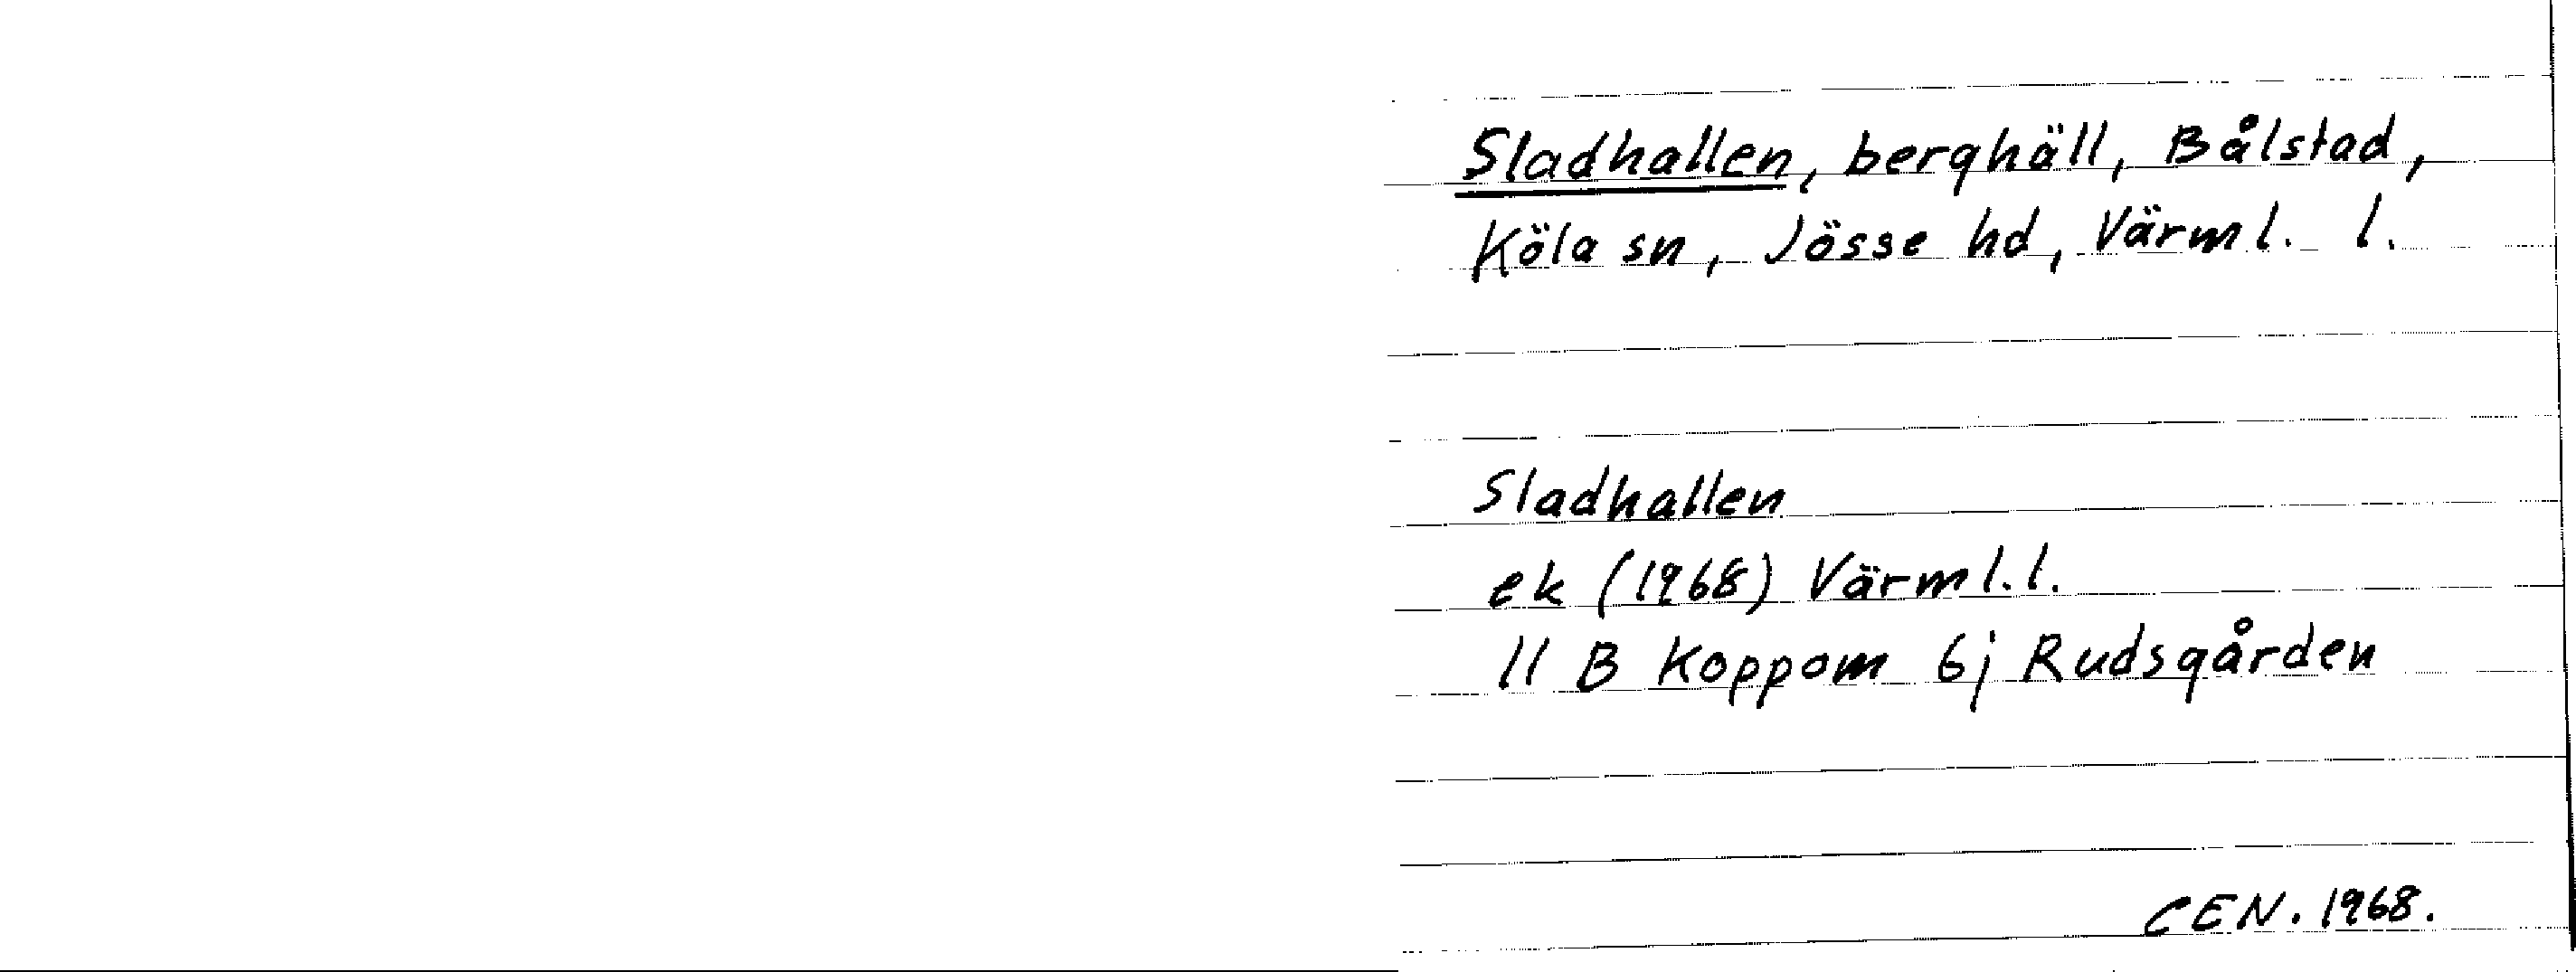 Sladhallen, berghäll, Bålstad,
Köla sn, Jösse hd, Värml. l.
Sladhallen
ek (1968) Värml.l.
11 B Koppom 6j Rudsgården
CEN. 1968.